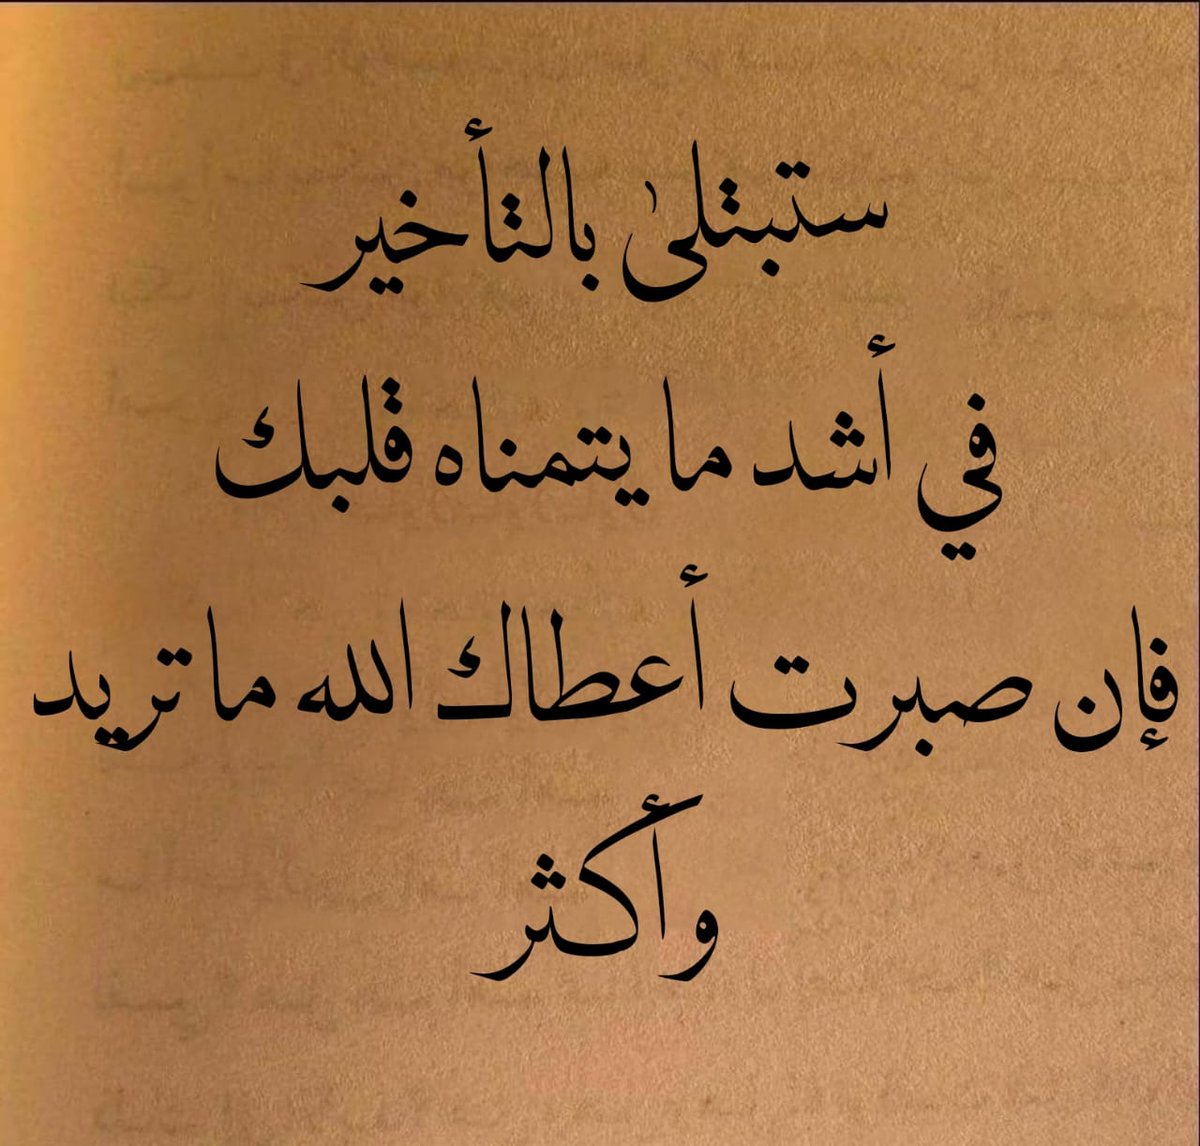 ستبتلىٰ بالتأخير
في أشد ما يتمناه قلبك
فإن صبرت أعطاك الله ما تريد
وأكثر